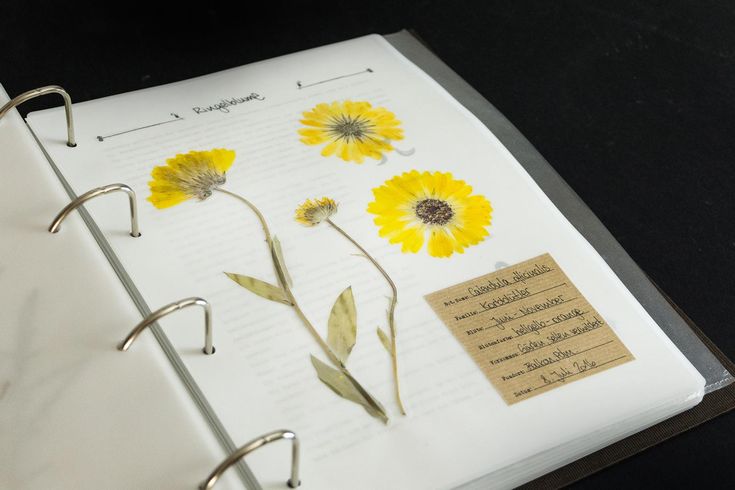 Ringelblume
Bot. Name: Calendula officinalis
Familie: Korbblütler
Blüte: Juni - November
Blütenfarbe: hellgelb - orange
Vorkommen: Gärten, selten verwildert
Fundort: Balkon
Datum: 8. Juli 2016